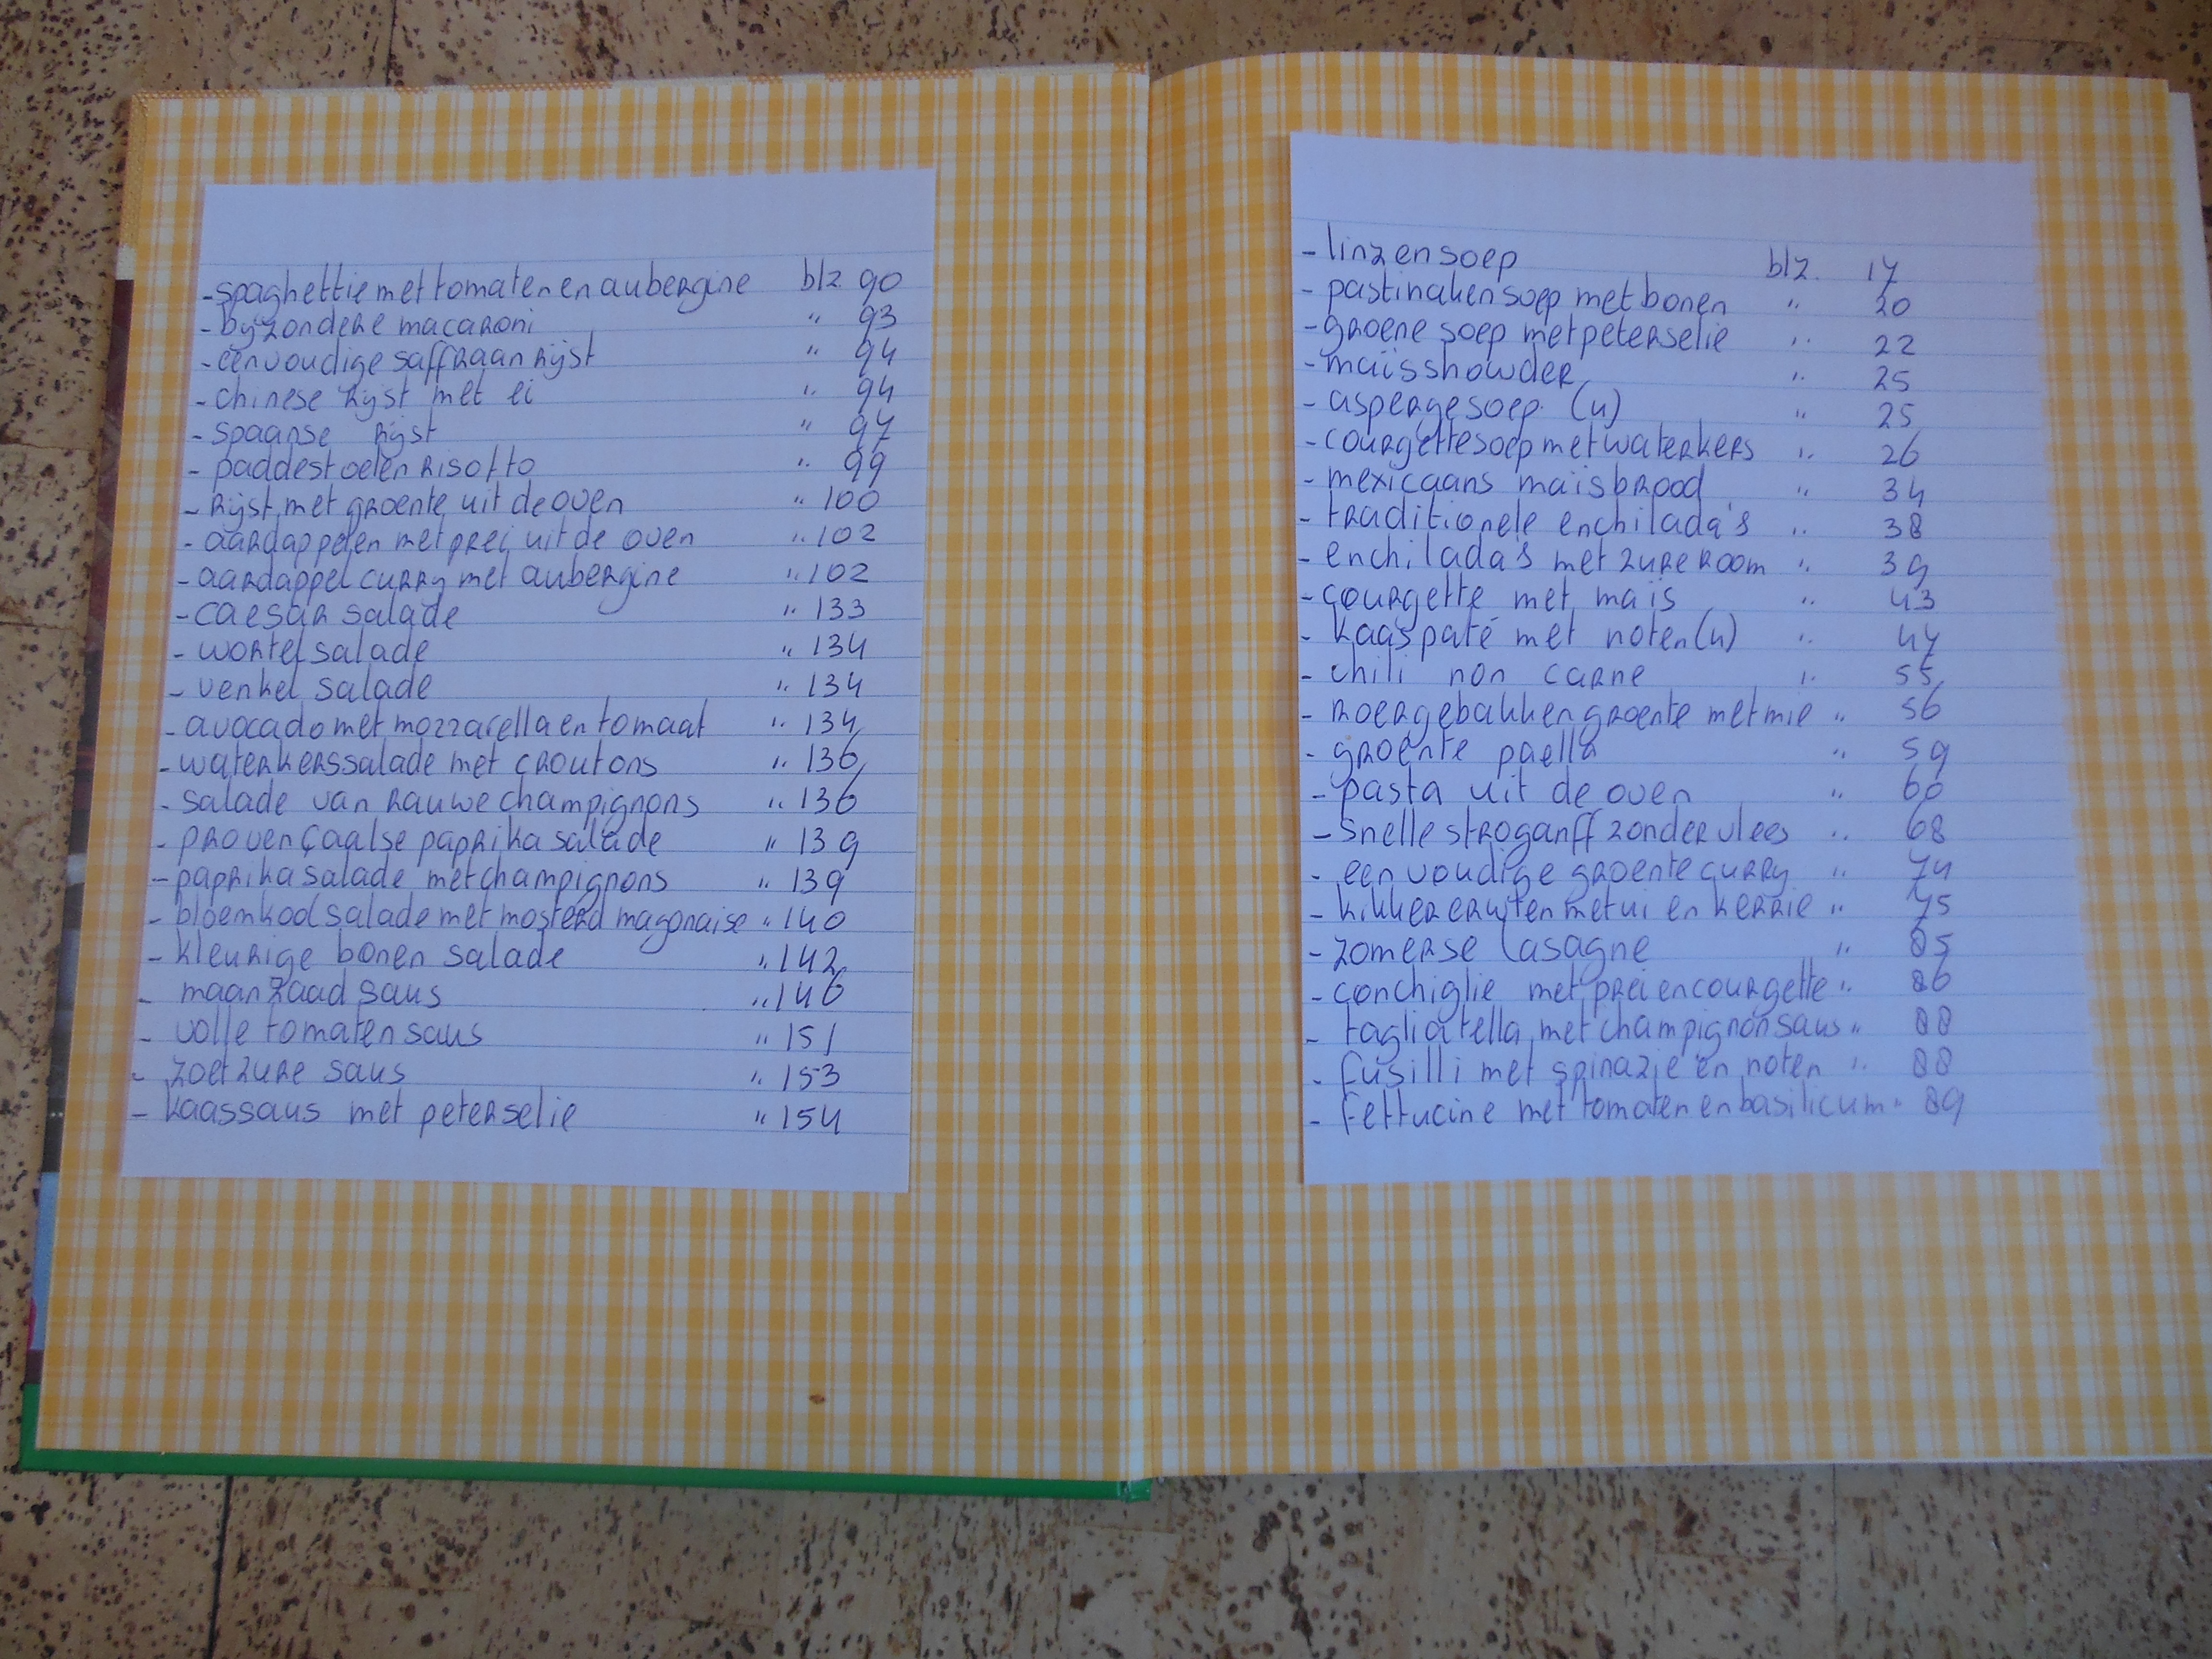 - spaghettie met tomaten en aubergine blz. 90
- byzondere macaroni " 93
- eenvoudige saffraan rijst " 94
- chinese rijst met ei " 94
- spaanse rijst " 97
- paddestoelen risotto " 99
- rijst met groente uit de oven " 100
- aardappelen met prei uit de oven " 102
- aardappel curry met aubergine " 102
- caesar salade " 133
- wortel salade " 134
- venkel salade " 134
- avocado met mozzarella en tomaat " 134
- waterkerssalade met croutons " 136
- salade van rauwe champignons " 136
- provençaalse paprika salade " 139
- paprika salade met champignons " 139
- bloemkool salade met mosterd mayonaise " 140
- kleurige bonen salade " 142
- maanzaad saus " 146
- volle tomaten saus " 151
- zoetzure saus " 153
- kaassaus met peterselie " 154
- linzensoep blz. 17
- pastinaken soep met bonen " 20
- groene soep met peterselie " 22
- maïsshowder " 25
- aspergesoep (4) " 25
- courgettesoep met waterkers " 26
- mexicaans maïsbrood " 34
- traditionele enchilada's " 38
- enchilada's met zure room " 39
- courgette met mais " 43
- kaaspaté met noten (4) " 47
- chili non carne " 55
- roergebakken groente met mie " 56
- groente paella " 59
- pasta uit de oven " 60
- snelle stroganff zonder vlees " 68
- eenvoudige groente curry " 74
- kikkererwten met ui en kerrie " 75
- zomerse lasagne " 85
- conchiglie met prei en courgette " 86
- tagliatella met champignonsaus " 88
- fusilli met spinazie en noten " 88
- fettucine met tomaten en basilicum " 89